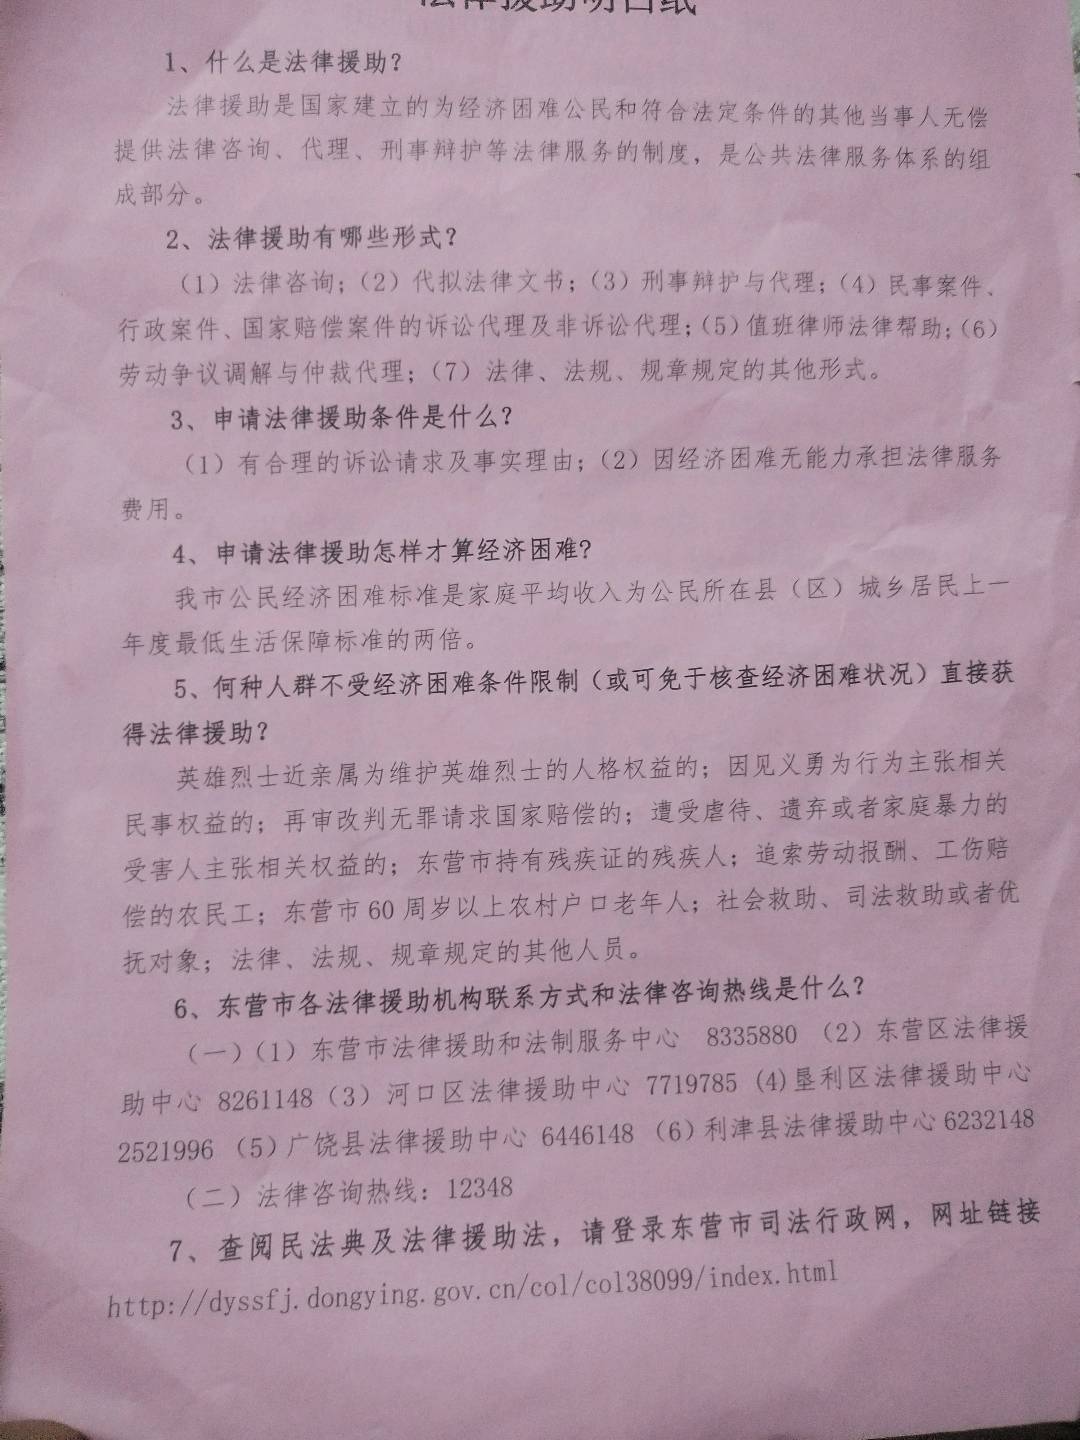 法律援助明白纸
1、什么是法律援助?
法律援助是国家建立的为经济困难公民和符合法定条件的其他当事人无偿
提供法律咨询、代理、刑事辩护等法律服务的制度，是公共法律服务体系的组
成部分。
2、法律援助有哪些形式?
（1）法律咨询；（2）代拟法律文书；（3）刑事辩护与代理；（4）民事案件、
行政案件、国家赔偿案件的诉讼代理及非诉讼代理；（5）值班律师法律帮助；（6）
劳动争议调解与仲裁代理；（7）法律、法规、规章规定的其他形式。
3、申请法律援助条件是什么?
（1）有合理的诉讼请求及事实理由；（2）因经济困难无能力承担法律服务
费用。
4、申请法律援助怎样才算经济困难?
我市公民经济困难标准是家庭平均收入为公民所在县（区）城乡居民上一
年度最低生活保障标准的两倍。
5、何种人群不受经济困难条件限制（或可免于核查经济困难状况）直接获
得法律援助?
英雄烈士近亲属为维护英雄烈士的人格权益的；因见义勇为行为主张相关
民事权益的；再审改判无罪请求国家赔偿的；遭受虐待、遗弃或者家庭暴力的
受害人主张相关权益的；东营市持有残疾证的残疾人；追索劳动报酬、工伤赔
偿的农民工；东营市 60 周岁以上农村户口老年人；社会救助、司法救助或者优
抚对象；法律、法规、规章规定的其他人员。
6、东营市各法律援助机构联系方式和法律咨询热线是什么?
（一）（1）东营市法律援助和法制服务中心 8335880 （2）东营区法律援
助中心 8261148（3）河口区法律援助中心 7719785 (4)垦利区法律援助中心
2521996 （5）广饶县法律援助中心 6446148 （6）利津县法律援助中心 6232148
（二）法律咨询热线：12348
7、查阅民法典及法律援助法，请登录东营市司法行政网，网址链接
http://dyssfj.dongying.gov.cn/col/col38099/index.html